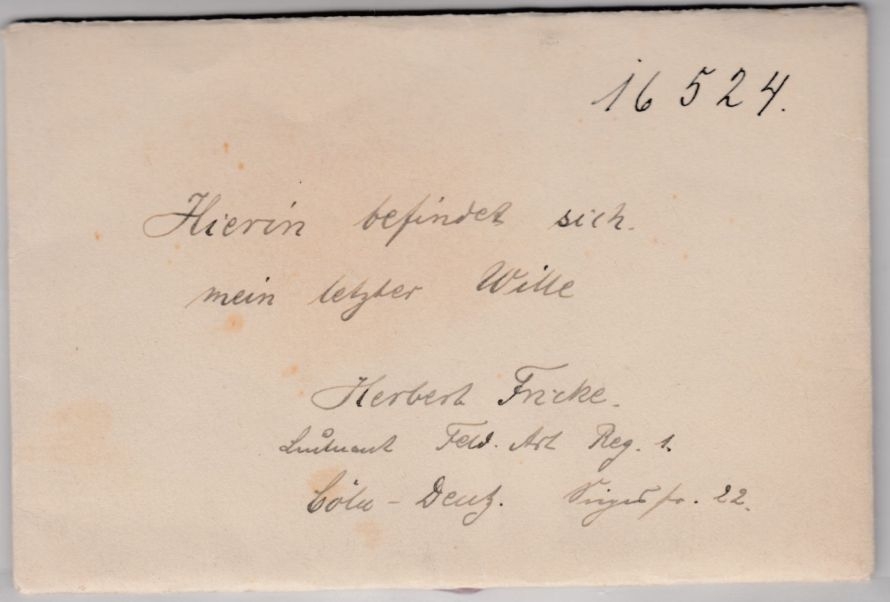 16524.
Hierin befindet sich.
mein letzter Wille
Herbert Fricke.
Leutnant Feld. Art Reg. 1.
Cöln - Deutz. 22.